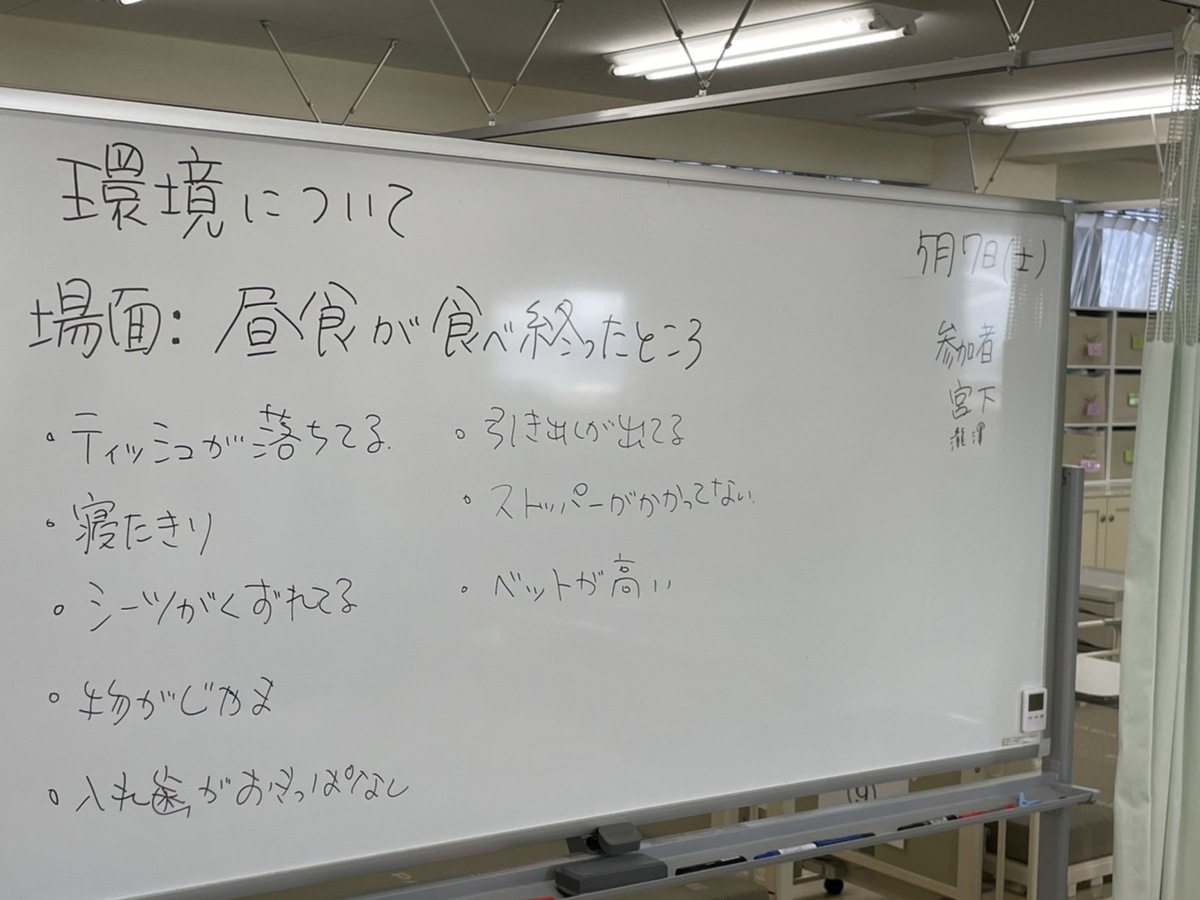 環境について
5月7日(土)
場面:昼食が食べ終ったところ
参加者
宮下
瀧澤
。ティッシュが落ちてる.
。寝たきり
。シーツがくずれてる
。物がじゃま
。入れ歯がおきっぱなし
。引き出しが出てる
。ストッパーがかかってない.
。ベットが高い
(9)